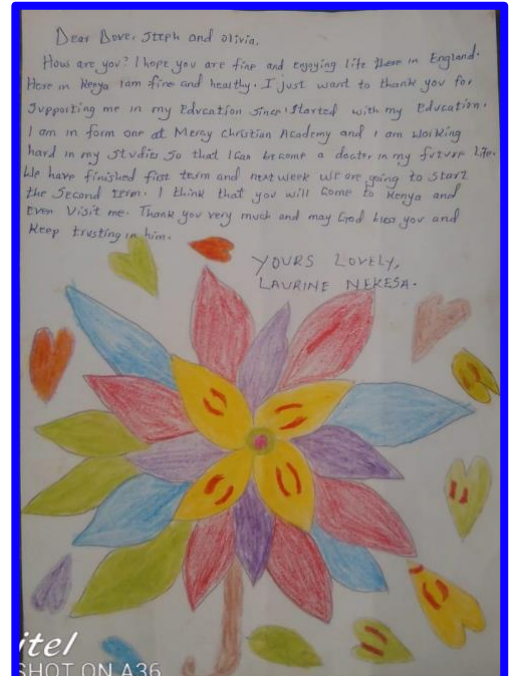 Dear Dave, Steph and Olivia,
How are you? I hope you are fine and enjoying life there in England.
Here in Kenya Iam fine and healthy. I just want to thank you for
Supporting me in my Education since I Started with my Education.
I am in form one at Mercy Christian Academy and I am Working
hard in my Studies So that I Can become a doctor in my future life.
We have finished first term and next week we are going to start
the Second term. I think that you will Come to Kenya and
Even Visit me. Thank you very much and may God bless you and
Keep trusting in him.
YOURS LOVELY,
LAURINE NEKESA.
itel
SHOT ON A36